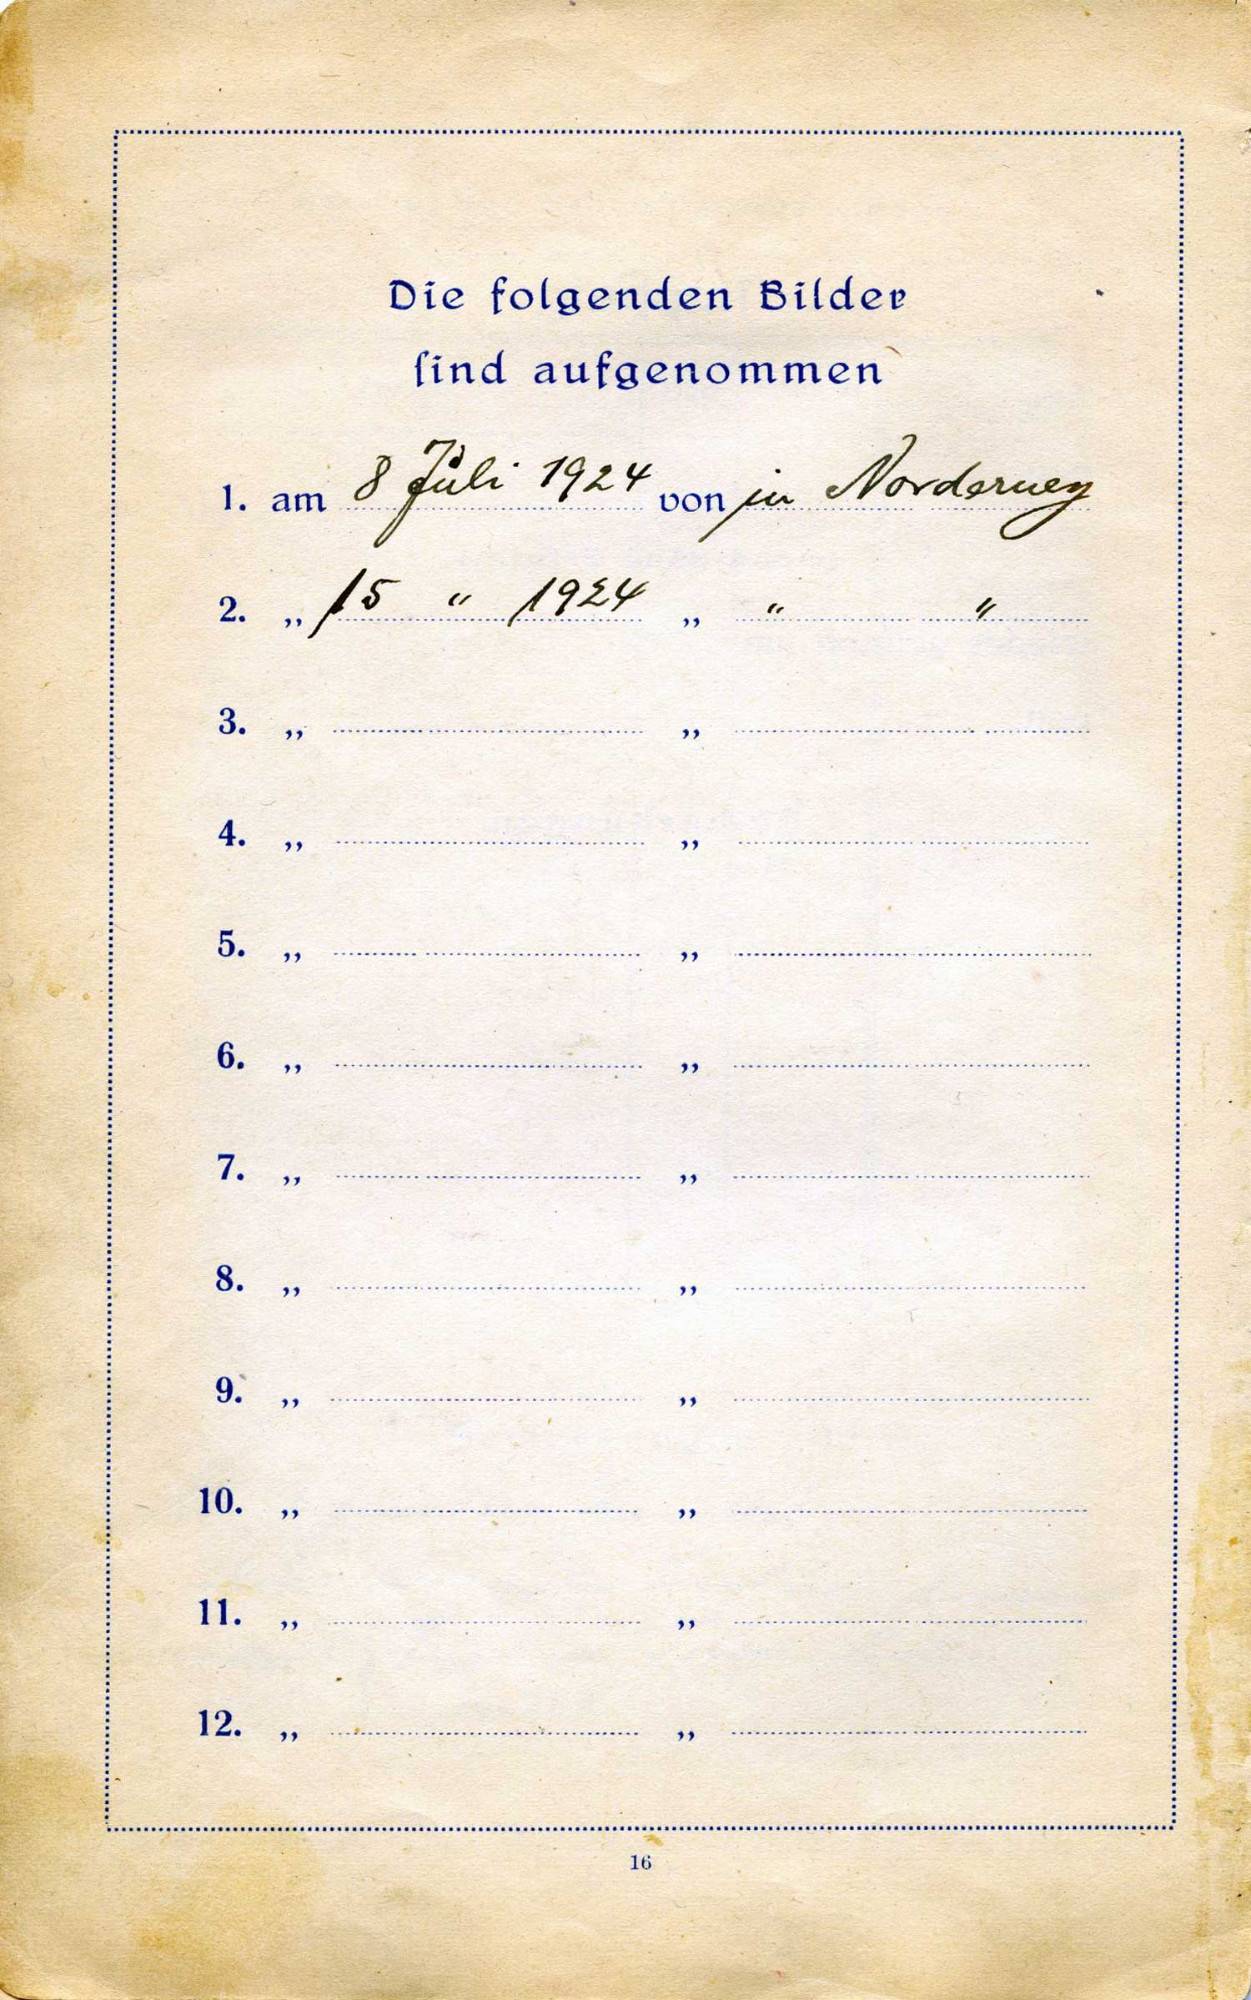 Die folgenden Bilder
ſind aufgenommen
1. am 8 Juli 1924 von in Norderney
2. „ 15 " 1924 „ " "
3. „ „
4. „ „
5. „ „
6. „ „
7. „ „
8. „ „
9. „ „
10. „ „
11. „ „
12. „ „
16